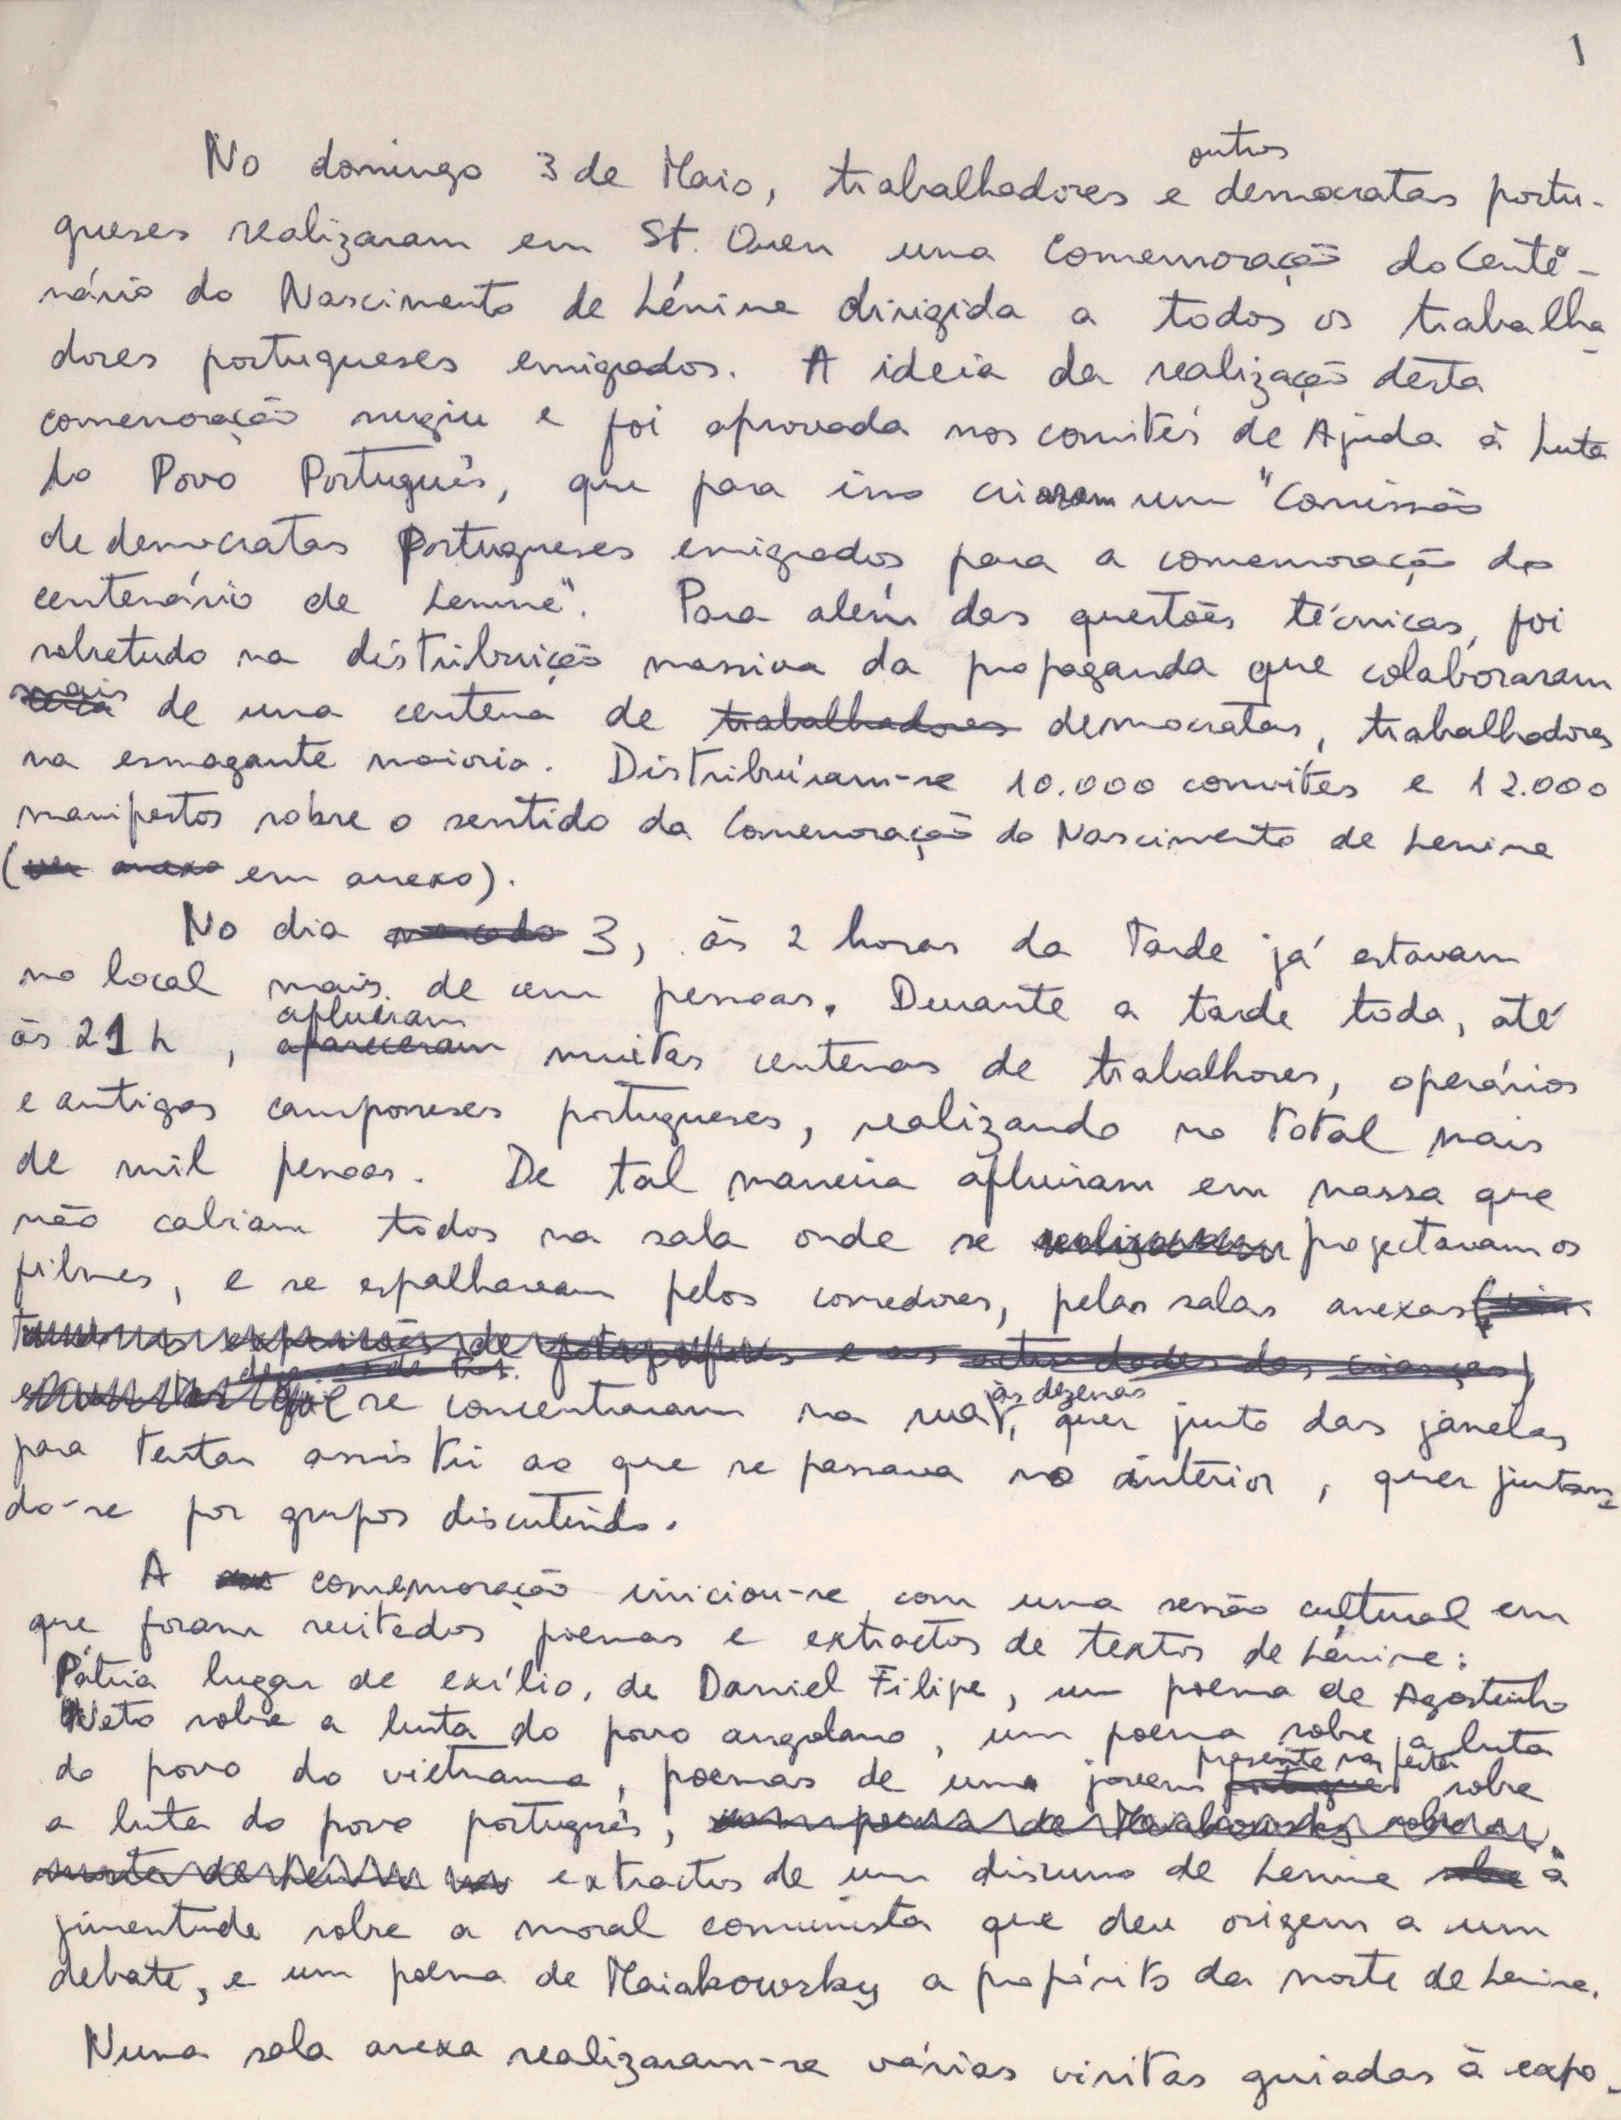 1
No domingo 3 de Maio, trabalhadores e outros democratas portu-
gueses realizaram em St. Ouen uma Comemoração do Centé-
nário do Nascimento de Lénine dirigida a todos os trabalha-
dores portugueses emigrados. A ideia da realização desta
comemoração surgiu e foi aprovada nos comités de Ajuda à Luta
do Povo Português, que para isso criaram um "Comissão
de democratas Portugueses emigrados para a comemoração do
centenário de Lenine". Para além das questões técnicas, foi
sobretudo na distribuição massiva da propaganda que colaboraram
mais de uma centena de trabalhadores democratas, trabalhadores
na esmagante maioria. Distribuíram-se 10.000 convites e 12.000
manifestos sobre o sentido da Comemoração do Nascimento de Lenine
(ver anexo em anexo).
No dia marcado 3, às 2 horas da tarde já estavam
no local mais de cem pessoas. Durante a tarde toda, até
às 21 h, apareceram afluiram muitas centenas de trabalhores, operários
e antigos camponeses portugueses, realizando no total mais
de mil pessoas. De tal maneira afluiram em massa que
não cabiam todos na sala onde se realizavam projectavam os
filmes, e se espalhavam pelos corredores, pelas salas anexas
exposições de fotografias e as actividades das crianças)
que se concentraram na rua às dezenas, quer junto das janelas
para tentar assistir ao que se passava no interior, quer juntan-
do-se por grupos discutindo.
A comemoração iniciou-se com uma sessão cultural em
que foram recitados poemas e extractos de textos de Lénine:
Pátria lugar de exílio, de Daniel Filipe, um poema de Agostinho
Neto sobre a luta do povo angolano, um poema sobre a luta
do povo do vietname, poemas de uma jovem portuguesa presente na festa sobre
a luta do povo português, um poema de Maiakowsky sobre a
morte de Lénine extractos de um discurso de Lenine sobre à
juventude sobre a moral comunista que deu origem a um
debate, e um poema de Maiakowsky a propósito da morte de Lenine.
Numa sala anexa realizaram-se várias visitas guiadas à expo-